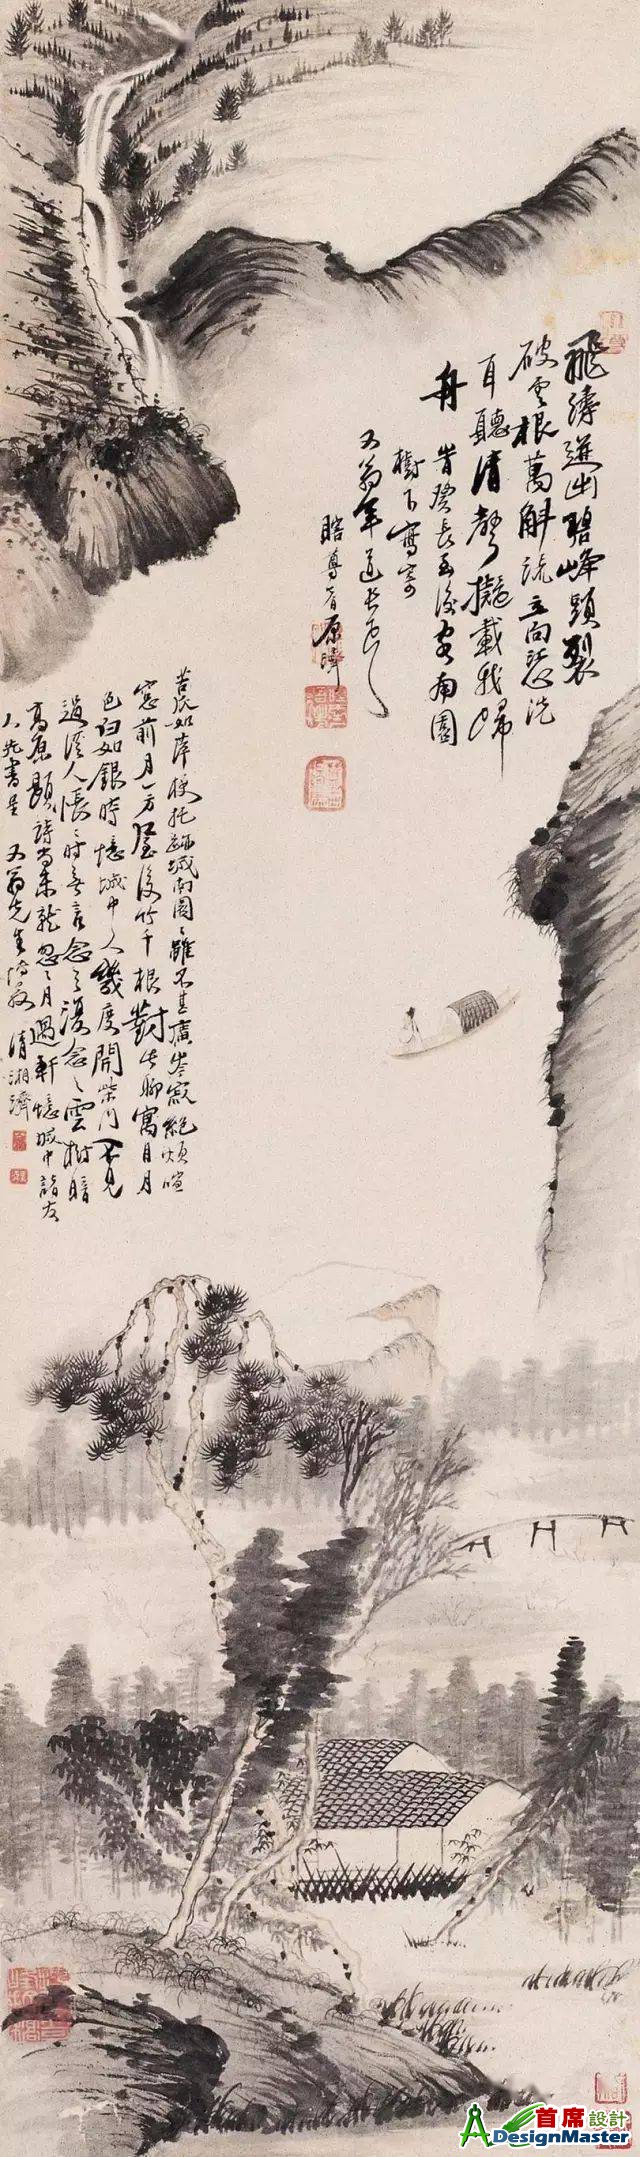 飛濤迸出碧峰頭裂
破雲根萬斛流立向
耳聽清聲擬載我歸
舟 時癸長至後客南園
樹下寫寄
又翁年道長兄
瞎尊者原濟
如萍梗托跡城南園園雖不甚廣岑寂絕煩喧
窓前月一方屋後竹千根對此聊寓目月
色白如銀時憶城中人幾度開柴門不見
過溪人悵悵時無言念之復念之雲樹暗
高原題詩尚未就忽忽月過軒 憶城中諸友
人 書呈 又翁先生博教 清湘濟
首席設計
DesignMaster